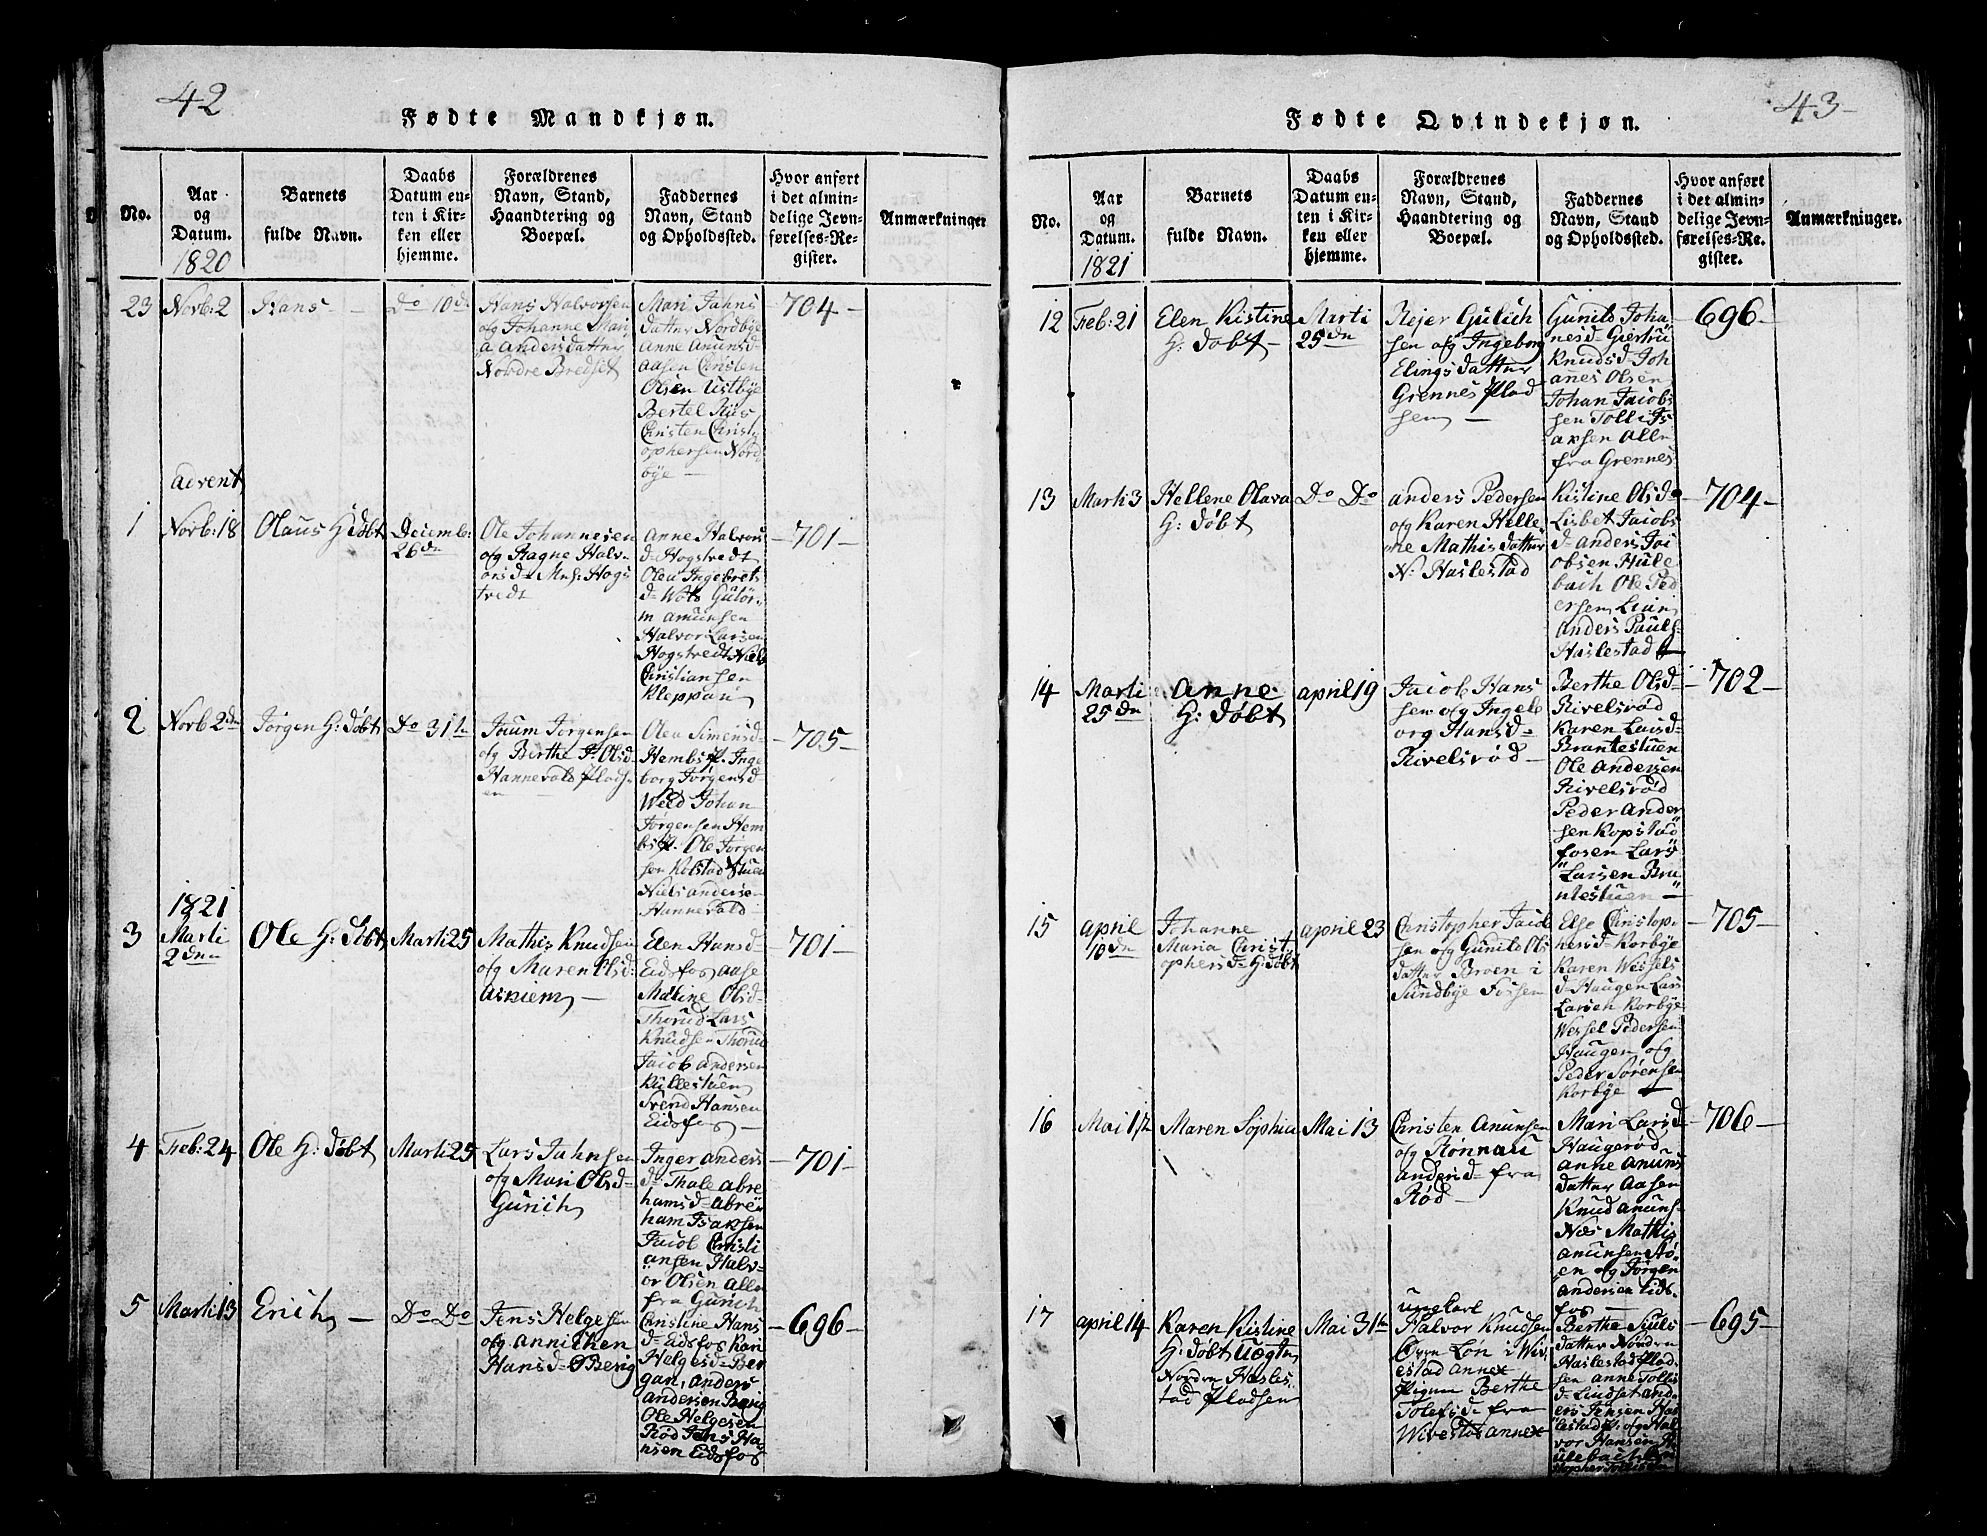 42
Fødte Mandkjøn.
No.
Aar
og
Datum.
1820
Barnets
fulde Navn.
Daabs
Datum en-
ten i Kir-
ken eller
hjemme.
Forældrenes
Navn, Stand,
Haandtering og
Boepæl.
Faddernes
Navn, Stand
og Opholdssted.
Hvor anført
i det almin-
delige Jevn-
førelses-Re-
gister.
Anmærkninger
23
Novb: 2
Hans -
Do 10de
Hans Halvorsen
ofg Johanne Mari
a Andersdatter
Nordre Bredset
Mari Jahns
datter Nordbye
Anne Anunsd
Aasen Christen
Olsen Ustbye
Bertel Riis
Christen Christ
ophersen Nord
bye -
- 704 -
Advent
1
Novb: 18
Olaus H: Døbt
Decemb:
26dn
Ole Johannesen
ofg Ragne Halv
orsd- Hogs
tvedt
Anne Halvors
d- Hogstvedt
Olea Ingebrets
d-
m Amunsen
Halvor Larsen
Hogstvedt Niels
Christiansen
Kleppan
- 701 -
2
Novb 2dn
Jørgen H: Døbt
Do 31te
Jørgensen
ofg Berthe Olsd-
Hannevold Plads
en
Olea Simensd-
Hembs Pl. Inge
borg Jørgensd
Weld Johan
Jørgensen Hem
bs Pl. Ole Jørgen
sen Kolstad Stuen
Niels Andersen
Hannevold -
- 705 -
1821
3
Marti
2dn
Ole H: Døbt
Marti 25
Mathis Knudsen
ofg Maren Olsd-
Askiem -
Elen Hansd-
Eidsfos Aase
Maline Olsd-
Thorud Lars
Knudsen Thorud
Jacob Andersen
Kullestuen
Svend Hansen
Eidsfos -
- 701 -
4
Feb: 24
Ole H: Døbt
Marti 25
Lars Jahnsen
ofg Mari Olsd-
Gurich
Inger Anders
d- Thale Abre
hamsd- Abre
ham Isaksen
Jacob Christi
ansen Halv-
or Olsen Alle
fra Gurich
- 701 -
5
Marti 13
Erich -
Do Do
Jens Helgesen
ofg Annichen
Hansd- Ø Berig
Christine Hans
d- Eidsfos Kari
Helgesd- Ber
gan, Anders
Andersen Berig
Ole Helgesen
Rød Jens Ha
nsen Eidsfos
- 696 -
43
Fødte Qvindekjøn.
No.
Aar
og
Datum.
1821
Barnets
fulde Navn.
Daabs
Datum en-
ten i Kir-
ken eller
hjemme.
Forældrenes
Navn, Stand,
Haandtering og
Boepæl.
Faddernes
Navn, Stand
og Opholdssted.
Hvor anført
i det almin-
delige Jevn-
førelses-Re-
gister.
Anmærkninger.
12
Feb: 21
Elen Kistine
H: Døbt -
Marti
25dn
Rejer Gulich
sen ofg Ingeborg
Elingsdatter
Grennes Plad
sen -
Gunild Joha
nesd- Giertru
Knudsd- Joh
anes Olsen
Johan Jacobs
sen Tolli Is
aksen Alle
fra Grennes
- 696 -
13
Marti 3
Hellene Olava
H: Døbt
Do Do
Anders Pedersen
ofg Karen Helle
ne Mathisdatter
N: Haslestad
Kistine Olsd-
Lisbet Jacobs
d- Anders Jac
obsen Hule
bach Ole Ped
ersen Lian
Anders Pauls-
Haslestad
- 704 -
14
Marti
25dn
Anne
H: Døbt
April 19
Jacob Hans
sen ofg Ingeb
org Hansd-
Rivelsrød -
Berthe Olsd-
Rivelsrød
Karen Larsd-
Brantestuen
Ole Andersen
Rivelsrød
Peder Ander
sen Kopstad
fosen Lars
Larsen Bra
ntestuen -
- 702 -
15
April
10dn
Johanne
Maria Christ
ophersd- H: Døbt
April 23
Christopher Jacob
sen ofg Gunild Ols
datter Broen i
Sundbye Fossen
Else Christop-
hersd- Korbye
Karen Wessels
d- Haugen Lars
Larsen Korbye
Wessel Pedersen
Haugen ofg
Peder Sørensen
Korbye -
- 705 -
16
Mai 1ste
Maren Sophia
Mai 13
Christen Anunsen
ofg Rønnau
Andersd- fra
Rød -
Mari Larsd-
Haugerød
Anne Anuns
datter Aasen
Knud Anuns-
Næs Mathis
Anunsen Stø
en ofg Jørgen
Andersen Eids
fos -
- 706 -
17
April 14
Karen Kistine
H: Døbt Uægte
Nordre Hasles
tad Pladsen
Mai 31te
ungkarl
Halvor Knudsen
Øvre Løn i Wiv
estad Annex
Pigen Berthe
Tolefsd- fra
Wivestad Annex
Berthe Siuls
datter Nordre
Haslestad Plad
sen Anne Tollis
d- Lindset And
ers Jensen Has
lestad Pl. ofg Hal
vor Hansen H
ulebach
- 695 -